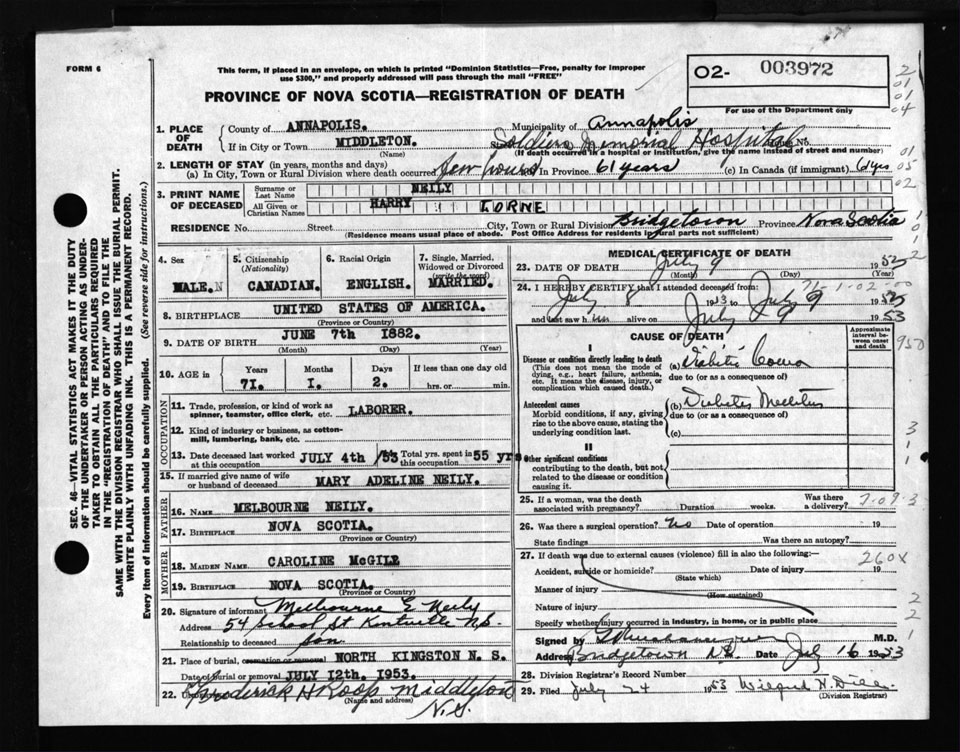 FORM 6
This form, if placed in an envelope, on which is printed "Dominion Statistics—Free, penalty for improper
use $300," and properly addressed will pass through the mail "FREE"
O2- 003972
PROVINCE OF NOVA SCOTIA—REGISTRATION OF DEATH
For use of the Department only
1. PLACE OF DEATH
County of ANNAPOLIS. Municipality of Annapolis
If in City or Town MIDDLETON. Soldiers Memorial Hospital No.
(Name) (If death occurred in a hospital or institution, give the name instead of street and number)
2. LENGTH OF STAY (in years, months and days)
(a) In City, Town or Rural Division where death occurred few hours In Province 61 years (c) In Canada (if immigrant) 61 yrs
3. PRINT NAME OF DECEASED
Surname or Last Name NEILY
All Given or Christian Names HARRY LORNE
RESIDENCE No. Street City, Town or Rural Division Bridgetown Province Nova Scotia
(Residence means usual place of abode. Post Office Address for residents in rural parts not sufficient)
4. Sex
MALE. N
5. Citizenship
(Nationality)
CANADIAN.
6. Racial Origin
ENGLISH.
7. Single, Married,
Widowed or Divorced
(write the word)
MARRIED.
8. BIRTHPLACE UNITED STATES OF AMERICA.
(Province or Country)
9. DATE OF BIRTH JUNE 7th 1882.
(Month) (Day) (Year)
10. AGE in Years Months Days If less than one day old
71. 1. 2. hrs. or min.
OCCUPATION
11. Trade, profession, or kind of work as
spinner, teamster, office clerk. etc. LABORER.
12. Kind of industry or business, as cotton-
mill, lumbering, bank, etc.
13. Date deceased last worked at this occupation JULY 4th /53 Total yrs. spent in this occupation 55 yrs
15. If married give name of wife
or husband of deceased MARY ADELINE NEILY.
FATHER
16. NAME MELBOURNE NEILY.
17. BIRTHPLACE NOVA SCOTIA.
(Province or Country)
MOTHER
18. MAIDEN NAME CAROLINE McGILL
19. BIRTHPLACE NOVA SCOTIA.
(Province or Country)
20. Signature of informant Melbourne E Neily
Address 54 School St Kentville N.S.
Relationship to deceased Son
21. Place of burial, cremation or removal NORTH KINGSTON N. S.
Date of burial or removal JULY 12th. 1953.
22. Frederick H Roop Middleton
N.S.
(Name and address)
MEDICAL CERTIFICATE OF DEATH
23. DATE OF DEATH July 9 19 53
(Month) (Day) (Year)
24. I HEREBY CERTIFY that I attended deceased from
July 8 1953 to July 9 1953
and last saw him alive on July 9 1953
71-1-02-00
CAUSE OF DEATH
Approximate interval between onset and death
I
Disease or condition directly leading to death
(This does not mean the mode of dying, e.g., heart failure, asthenia, etc. It means the disease, injury, or complication which caused death.)
(a) Diabetic Coma
due to (or as a consequence of)
Antecedent causes
Morbid conditions, if any, giving rise to the above cause, stating the underlying condition last.
(b) Diabetes Mellitus
due to (or as a consequence of)
(c)
II
Other significant conditions
contributing to the death, but not related to the disease or condition causing it.
25. If a woman, was the death
associated with pregnancy? Duration weeks. Was there a delivery?
26. Was there a surgical operation? No Date of operation 19
State findings Was there an autopsy?
27. If death was due to external causes (violence) fill in also the following:
260X
Accident, suicide or homicide? Date of injury 19
(State which)
Manner of injury
(How sustained)
Nature of injury
Specify whether injury occurred in industry, in home, or in public place
Signed by M.D.
Address Bridgetown N.S. Date July 16 1953
28. Division Registrar's Record Number
29. Filed July 24 1953 Wilfred H. Dill
(Division Registrar)
SEC. 46—VITAL STATISTICS ACT MAKES IT THE DUTY
OF THE UNDERTAKER OR PERSON ACTING AS UNDER-
TAKER TO OBTAIN ALL THE PARTICULARS REQUIRED
IN THE "REGISTRATION OF DEATH" AND TO FILE THE
SAME WITH THE DIVISION REGISTRAR WHO SHALL ISSUE THE BURIAL PERMIT.
WRITE PLAINLY WITH UNFADING INK. THIS IS A PERMANENT RECORD.
Every item of information should be carefully supplied. (See reverse side for instructions.)